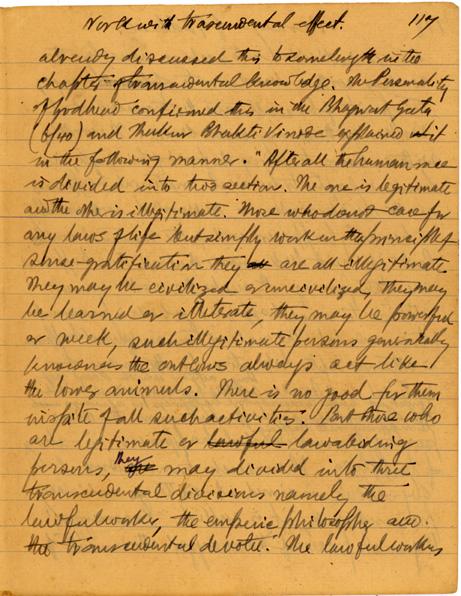 Work with trascendental effect. 117
already discussed this to some length in the
chapter of transcidental knowledge. The Personality
of Godhead confirmed this in the Bhagwat Geeta
(6/40) and Thakur Bhakti Vinode explained it
in the following manner. "After all the human race
is divided into two section. The one is legitimate
and the other is illigitimate. Those who do not care for
any laws of life but simply work on the principle of
sense-gratification they are all illegitimate.
They may be civilized or uncivilized, they may
be learned or illeterate, they may be powerful
or week, such illegitimate persons generally
known as the outlaws always act like
the lower animals. There is no good for them
inspite of all such activities". But those who
are legitimate or lawful lawabiding
persons, they may divided into three
transcendental divisions namely the
lawful worker, the emperic philosopher and
the transcendental devotee." The lawful workers